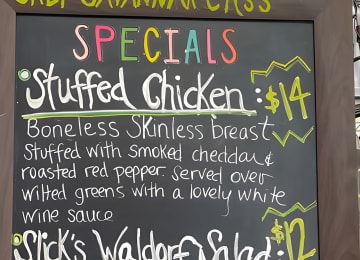 SPECIALS
Stuffed Chicken: $14
Boneless Skinless breast
Stuffed with smoked cheddar &
roasted red pepper. served over
wilted greens with a lovely white
wine sauce
Slick's Waldorf Salad: $12